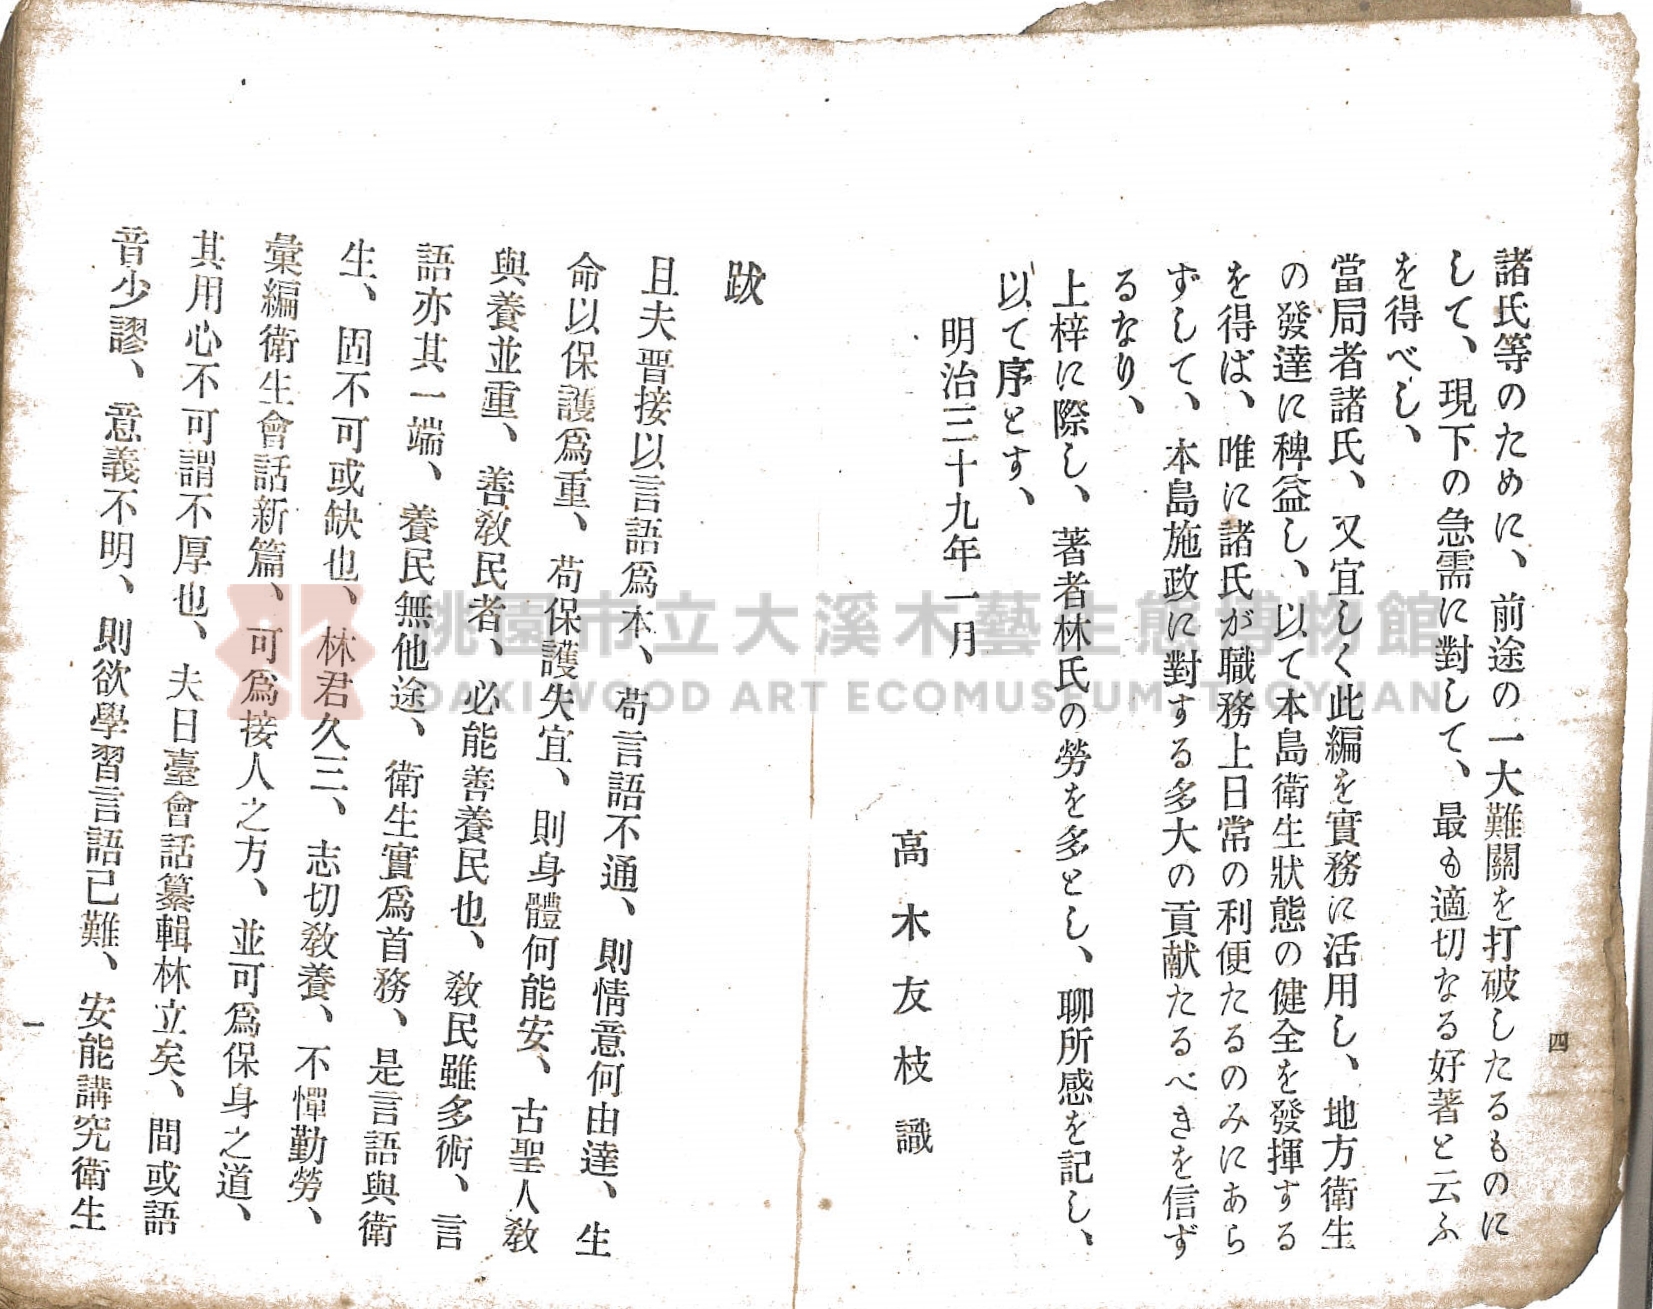 四
諸氏等のために、前途の一大難關を打破したるものに
して、現下の急需に對して、最も適切なる好著と云ふ
を得べし、
當局者諸氏、又宜しく此編を實務に活用し、地方衛生
の發達に稗益し、以て本島衛生狀態の健全を發揮する
を得ば、唯に諸氏が職務上日常の利便たるのみにあら
ずして、本島施政に對する多大の貢献たるべきを信ず
るなり、
上梓に際し、著者林氏の勞を多とし、聊所感を記し、
以て序とす、
明治三十九年一月
高木友枝識
跋
且夫晋接以言語爲本、苟言語不通、則情意何由達、生
命以保護爲重、苟保護失宜、則身體何能安、古聖人敎
與養並重、善敎民者、必能善養民也、敎民雖多術、言
語亦其一端、養民無他途、衛生實爲首務、是言語與衛
生、固不可或缺也、林君久三、志切敎養、不憚勤勞、
彙編衛生會話新篇、可爲接人之方、並可爲保身之道、
其用心不可謂不厚也、夫日臺會話纂輯林立矣、間或語
音少謬、意義不明、則欲學習言語已難、安能講究衛生
一
桃園市立大溪木藝生態博物館
DAXI WOOD ART ECOMUSEUM, TAOYUAN